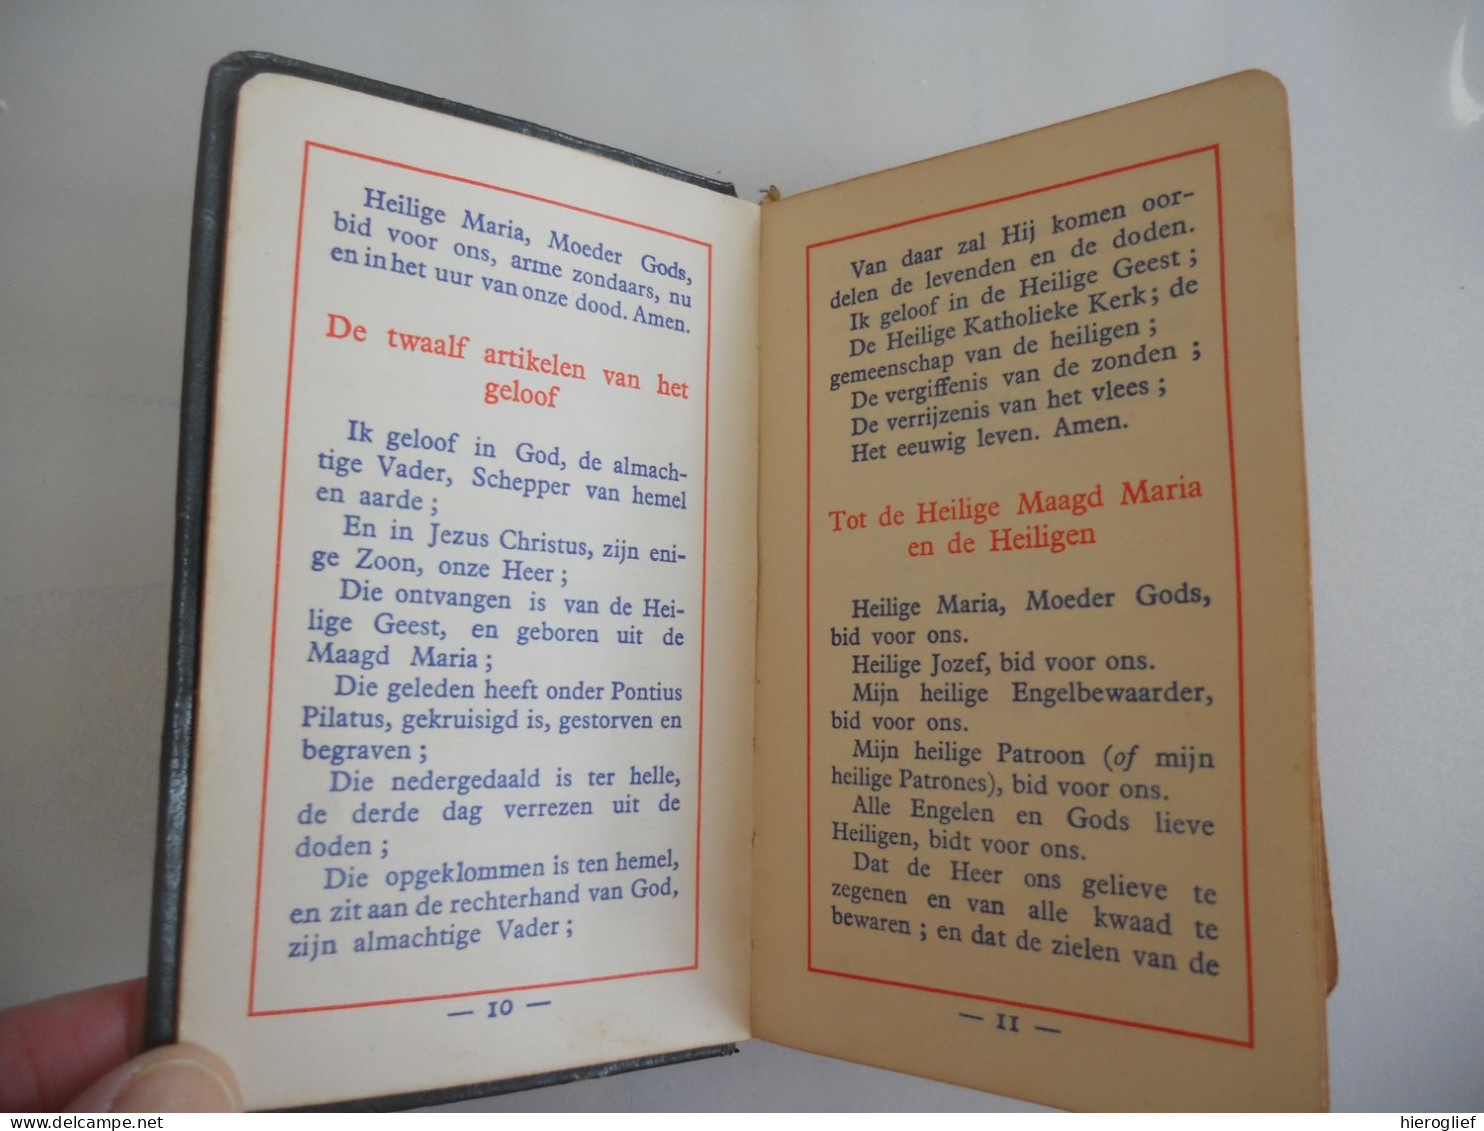 Heilige Maria, Moeder Gods,
bid voor ons, arme zondaars, nu
en in het uur van onze dood. Amen.
De twaalf artikelen van het
geloof
Ik geloof in God, de almach-
tige Vader, Schepper van hemel
en aarde ;
En in Jezus Christus, zijn eni-
ge Zoon, onze Heer ;
Die ontvangen is van de Hei-
lige Geest, en geboren uit de
Maagd Maria ;
Die geleden heeft onder Pontius
Pilatus, gekruisigd is, gestorven en
begraven ;
Die nedergedaald is ter helle,
de derde dag verrezen uit de
doden ;
Die opgeklommen is ten hemel,
en zit aan de rechterhand van God,
zijn almachtige Vader ;
— 10 —
Van daar zal Hij komen oor-
delen de levenden en de doden.
Ik geloof in de Heilige Geest ;
De Heilige Katholieke Kerk ; de
gemeenschap van de heiligen ;
De vergiffenis van de zonden ;
De verrijzenis van het vlees ;
Het eeuwig leven. Amen.
Tot de Heilige Maagd Maria
en de Heiligen
Heilige Maria, Moeder Gods,
bid voor ons.
Heilige Jozef, bid voor ons.
Mijn heilige Engelbewaarder,
bid voor ons.
Mijn heilige Patroon (of mijn
heilige Patrones), bid voor ons.
Alle Engelen en Gods lieve
Heiligen, bidt voor ons.
Dat de Heer ons gelieve te
zegenen en van alle kwaad te
bewaren ; en dat de zielen van de
— 11 —
hieroglief